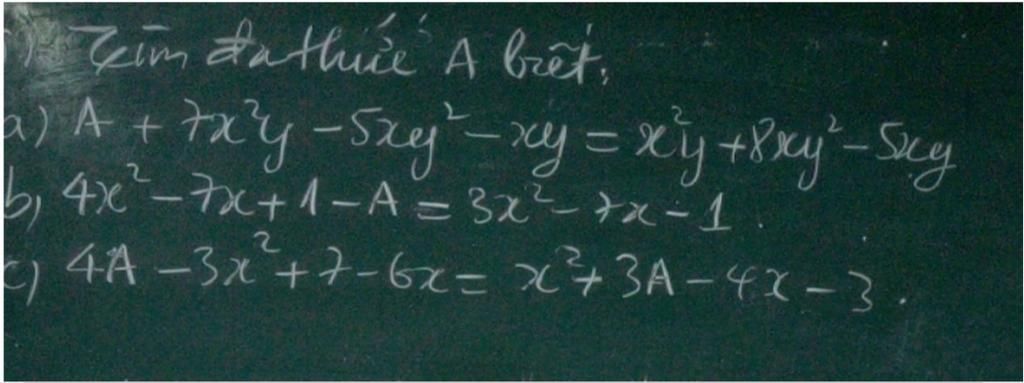 Tìm đa thức A biết:
a) A + 7x²y - 5xy² - xy = x²y + 8xy² - 5xy
b) 4x² - 7x + 1 - A = 3x² - 7x - 1.
c) 4A - 3x² + 7 - 6x = x² + 3A - 4x - 3.